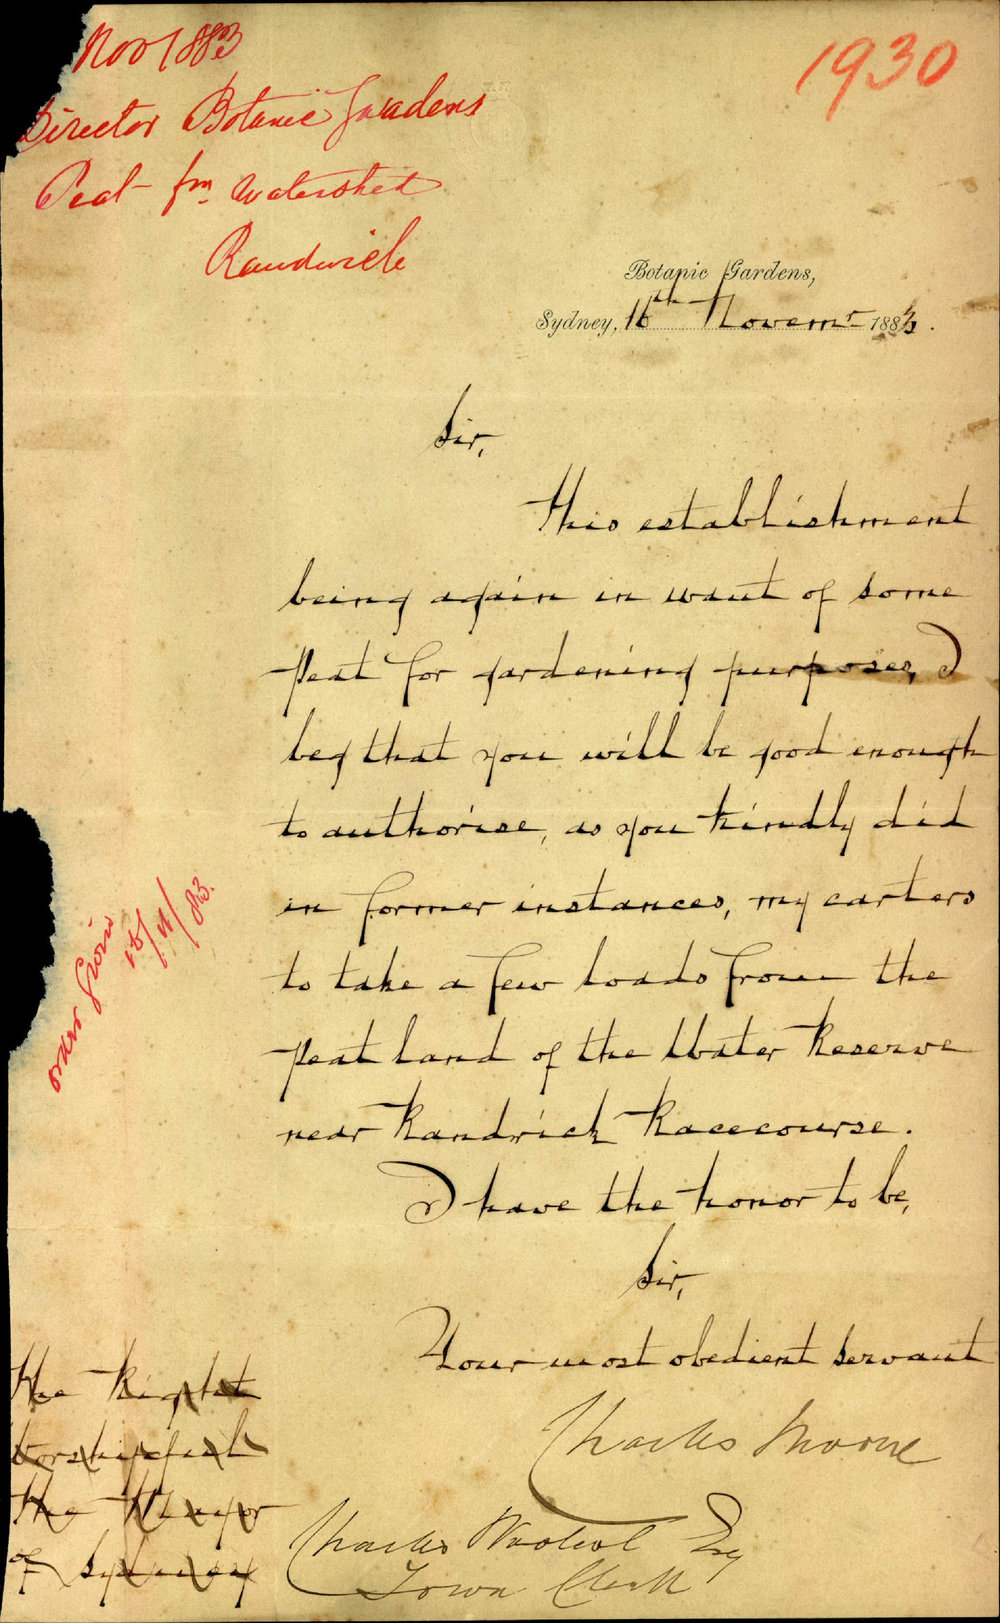 Nov 1883
1930
Director Botanic Gardens
Peat fm Watershed
Randwick
Botanic Gardens,
Sydney, 16th Novemr 1883.
Sir,
This establishment
being again in want of some
Peat for gardening purposes, I
beg that you will be good enough
to authorise, as you kindly did
in former instances, my carters
to take a few loads from the
peat land of the Water Reserve
near Randwick Racecourse.
order given
18/11/83.
I have the honor to be,
Sir,
Your most obedient servant
Charles Moore
The Right
Worshipful
The Mayor
of Sydney
Charles Woolcott Esq
Town Clerk